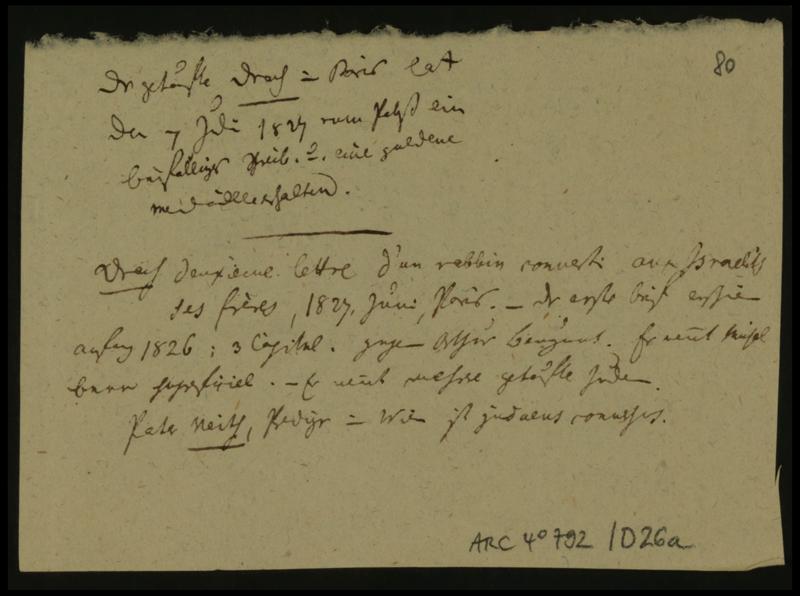 80
Der getaufte Drach in Paris hat
den 7 Juli 1827 vom Pabst ein
beifälliges Schreib. u. eine goldene
medaille erhalten.
Drach deuxieme lettre d'un rabbin converti aux Israelites
ses frères, 1827, Juni, Paris. – Der erste brief erschien
anfang 1826; 3 Capitel. gegen Arthur Beugnot. Er nennt
superficiel. – Er nennt mehre getaufte Juden.
Pater Veith, Prediger in Wien ist judaeus conversus.
ARC 4° 792 / D26a